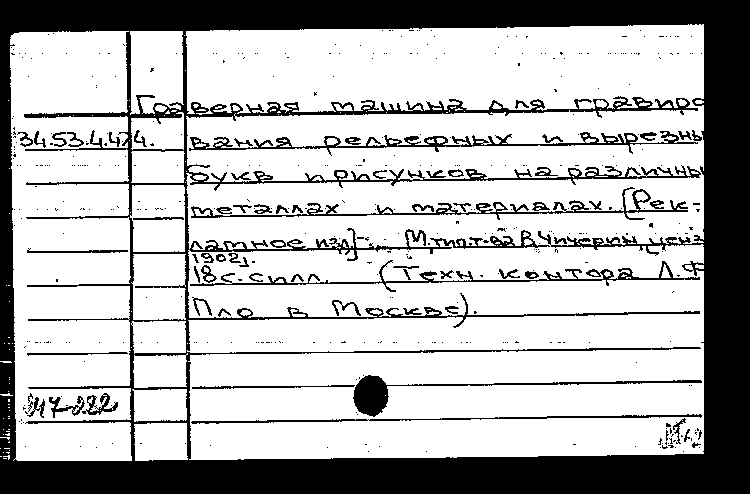 Граверная машина для гравиро
34.53.4.474. вания рельефных и вырезны
букв и рисунков на различны
металлах и материалах. [Рек-
ламное изд]-. М. тип. т-ва В. Чичерин, ценз
1902г.
18с. с илл. (Техн. контора Л.Ф
Пло в Москве).